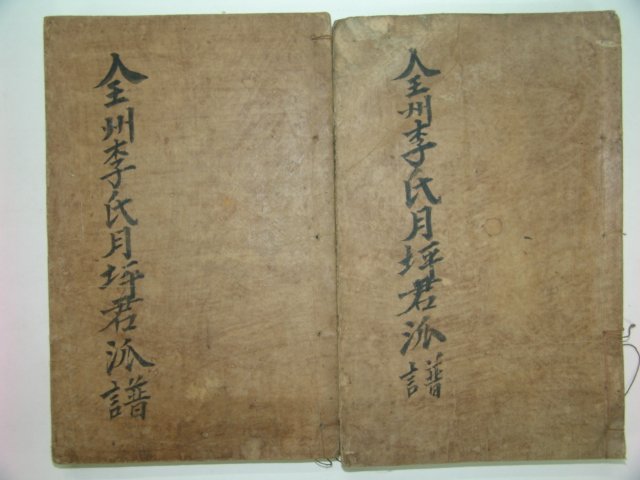 全州李氏月坪君派譜
全州李氏月坪君派譜